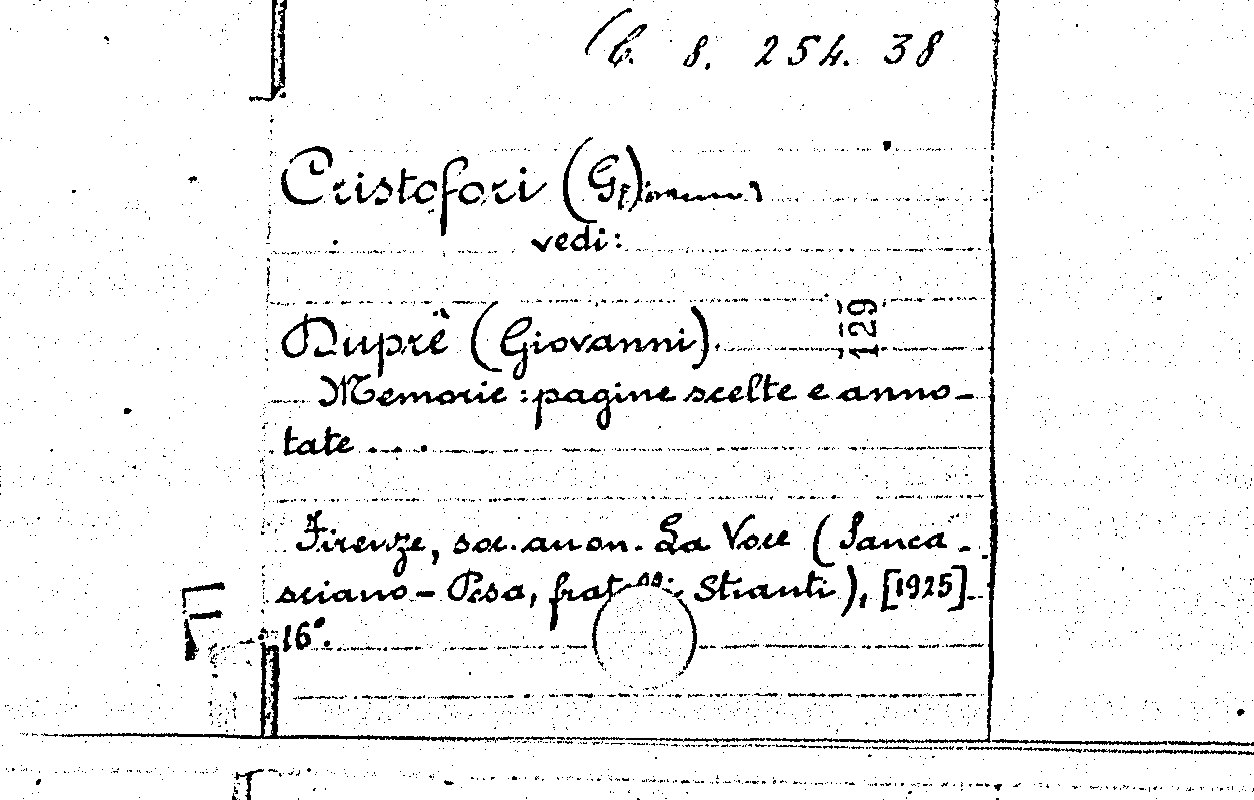 C. 8. 254. 38
Cristofori (G)
vedi:
Duprè (Giovanni).
129
Memorie: pagine scelte e anno-
tate ....
Firenze, soc. anon. La Voce (Sanca-
sciano - Pesa, Stianti), [1925]
16°.